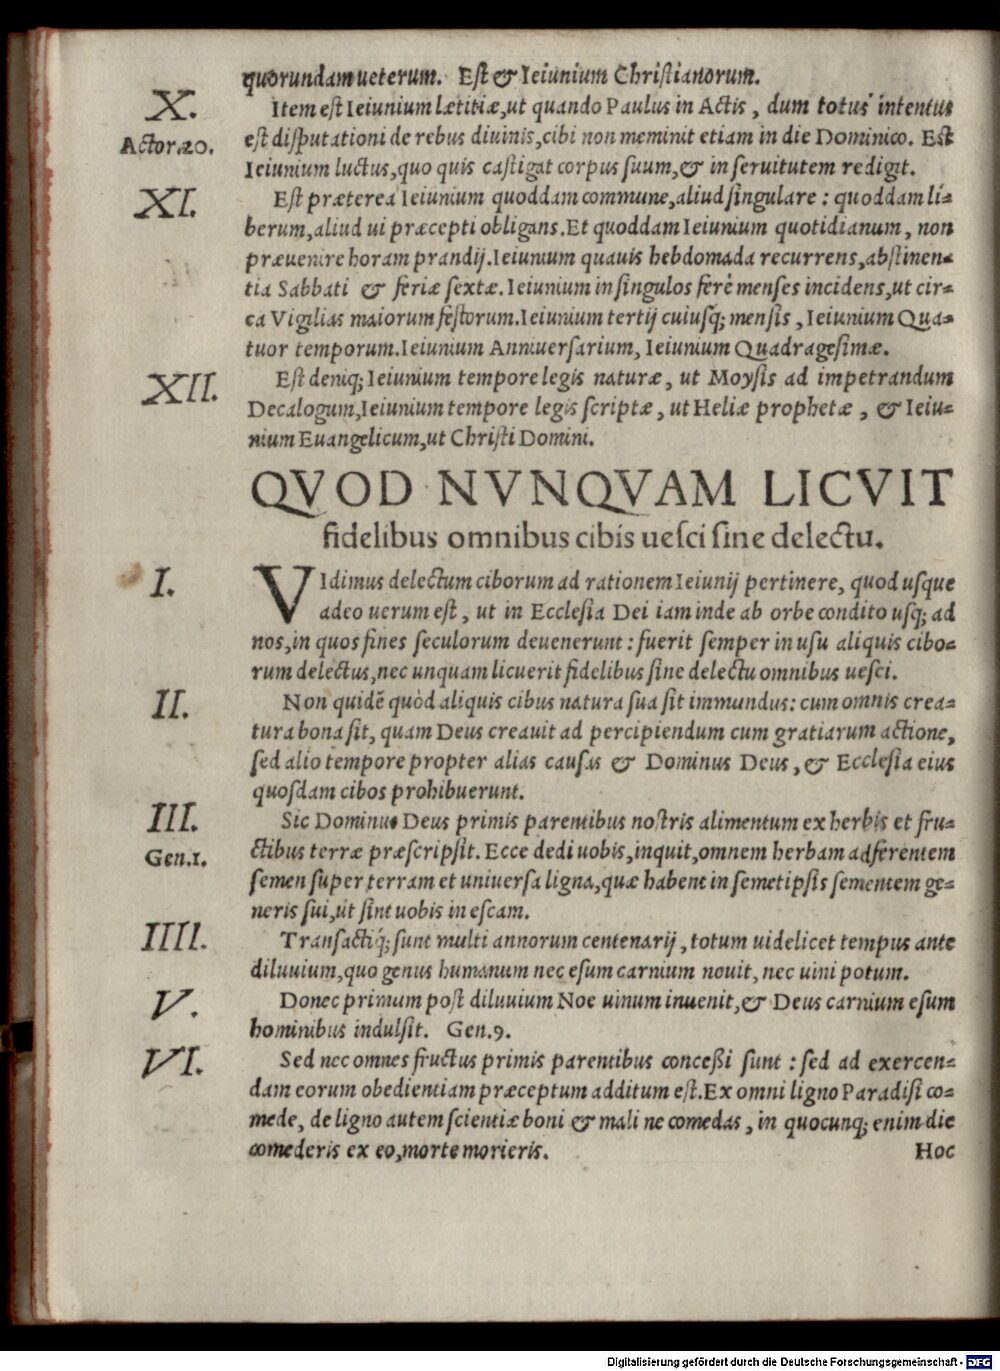 quorundam ueterum. Est & Ieiunium Christianorum.
X.
Item est Ieiunium lætitiæ, ut quando Paulus in Actis, dum totus intentus
Actor.20.
est disputationi de rebus diuinis, cibi non meminit etiam in die Dominico. Est
Ieiunium luctus, quo quis castigat corpus suum, & in seruitutem redigit.
XI.
Est præterea Ieiunium quoddam commune, aliud singulare: quoddam li-
berum, aliud ui præcepti obligans. Et quoddam Ieiunium quotidianum, non
præuenire horam prandij. Ieiunium quauis hebdomada recurrens, abstinen-
tia Sabbati & feriæ sextæ. Ieiunium in singulos ferè menses incidens, ut cir-
ca Vigilias maiorum festorum. Ieiunium tertij cuiusq; mensis, Ieiunium Qua-
tuor temporum. Ieiunium Anniuersarium, Ieiunium Quadragesimæ.
XII.
Est deniq; Ieiunium tempore legis naturæ, ut Moysis ad impetrandum
Decalogum, Ieiunium tempore legis scriptæ, ut Heliæ prophetæ, & Ieiu-
nium Euangelicum, ut Christi Domini.
QVOD NVNQVAM LICVIT
fidelibus omnibus cibis uesci sine delectu.
I.
VIdimus delectum ciborum ad rationem Ieiunij pertinere, quod usque
adeo uerum est, ut in Ecclesia Dei iam inde ab orbe condito usq; ad
nos, in quos fines seculorum deuenerunt: fuerit semper in usu aliquis cibo-
rum delectus, nec unquam licuerit fidelibus sine delectu omnibus uesci.
II.
Non quidē quòd aliquis cibus natura sua sit immundus: cum omnis crea-
tura bona sit, quam Deus creauit ad percipiendum cum gratiarum actione,
sed alio tempore propter alias causas & Dominus Deus, & Ecclesia eius
quosdam cibos prohibuerunt.
III.
Sic Dominus Deus primis parentibus nostris alimentum ex herbis et fru-
Gen.1.
ctibus terræ præscripsit. Ecce dedi uobis, inquit, omnem herbam adferentem
semen super terram et uniuersa ligna, quæ habent in semetipsis sementem ge-
neris sui, ut sint uobis in escam.
IIII.
Transactiq́; sunt multi annorum centenarij, totum uidelicet tempus ante
diluuium, quo genus humanum nec esum carnium nouit, nec uini potum.
V.
Donec primum post diluuium Noe uinum inuenit, & Deus carnium esum
hominibus indulsit. Gen.9.
VI.
Sed nec omnes fructus primis parentibus conceßi sunt: sed ad exercen-
dam eorum obedientiam præceptum additum est. Ex omni ligno Paradisi co-
mede, de ligno autem scientiæ boni & mali ne comedas, in quocunq; enim die
comederis ex eo, morte morieris.
Hoc
Digitalisierung gefördert durch die Deutsche Forschungsgemeinschaft - DFG